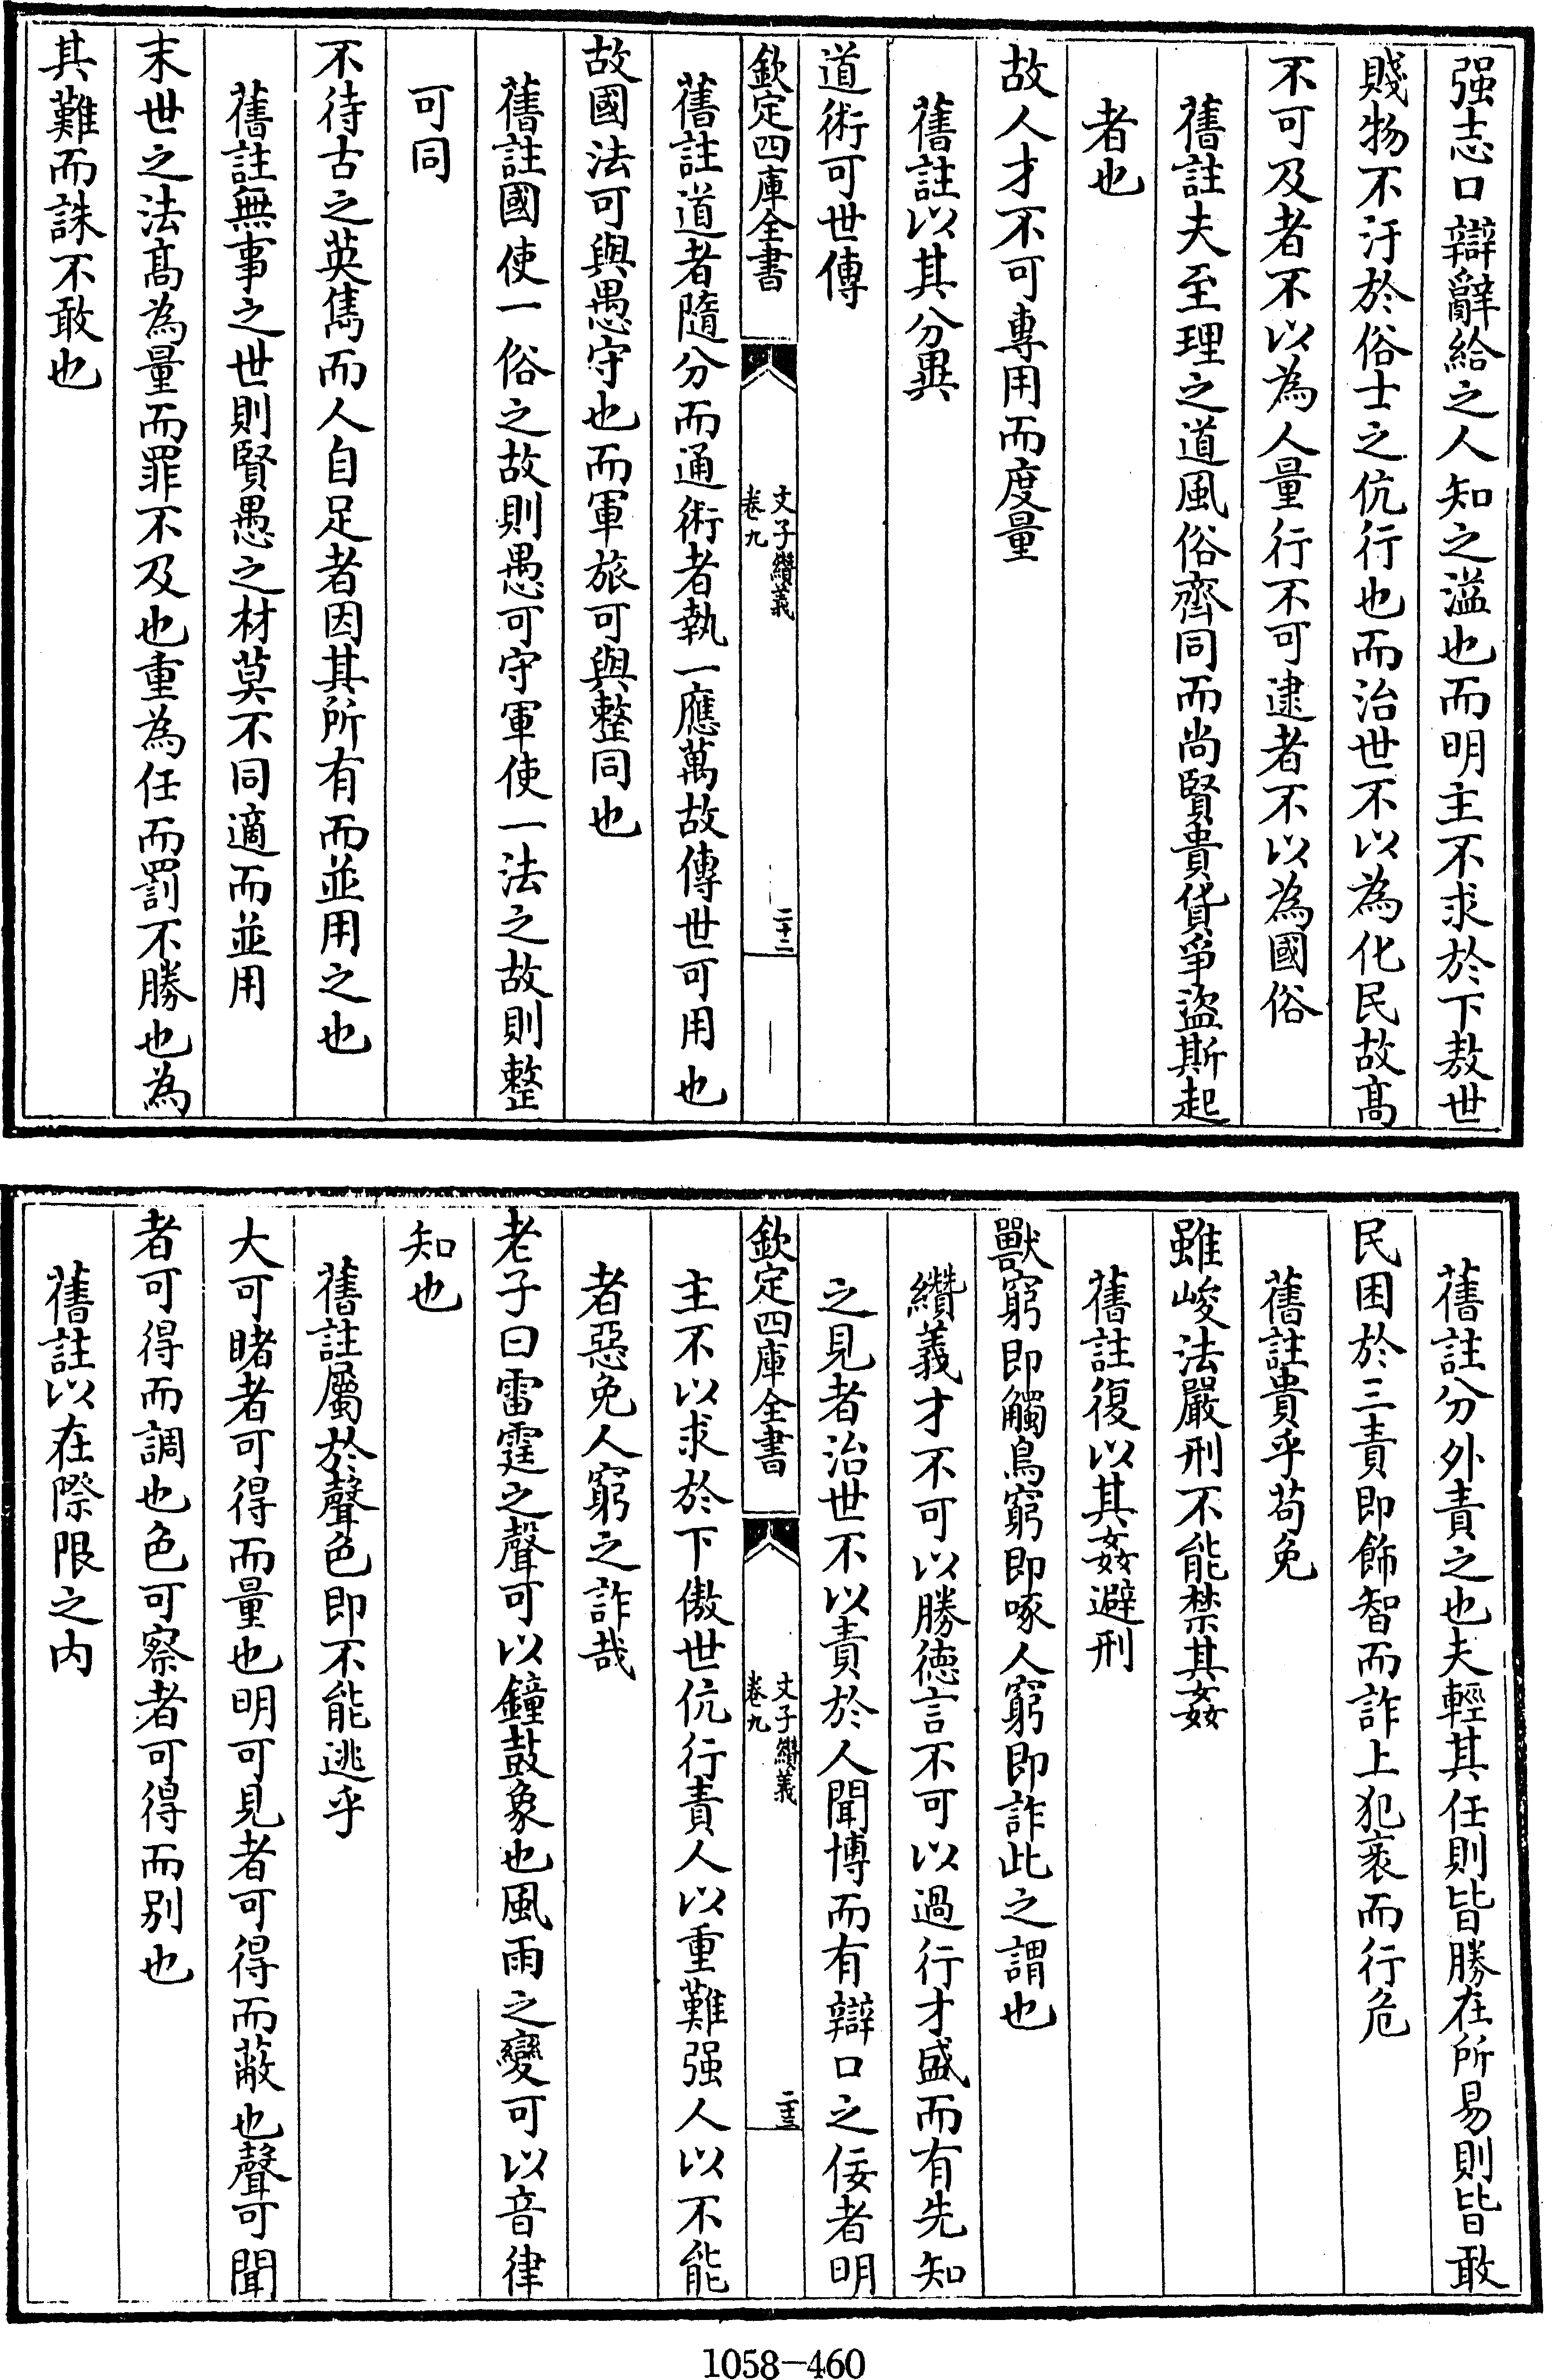 强志口辯辭給之人知之溢也而明主不求於下敖世
賤物不汙於俗士之伉行也而治世不以為化民故髙
不可及者不以為人量行不可逮者不以為國俗
舊註夫至理之道風俗齊同而尚賢貴貨爭盜斯起
者也
故人才不可專用而度量
舊註以其分異
道術可世傳
欽定四庫全書
文子纘義
卷九
二十二
舊註道者隨分而通術者執一應萬故傳世可用也
故國法可與愚守也而軍旅可與整同也
舊註國使一俗之故則愚可守軍使一法之故則整
可同
不待古之英雋而人自足者因其所有而並用之也
舊註無事之世則賢愚之材莫不同適而並用
末世之法髙為量而罪不及也重為任而罰不勝也為
其難而誅不敢也
舊註分外責之也夫輕其任則皆勝在所易則皆敢
民困於三責即飾智而詐上犯衺而行危
舊註貴乎苟免
雖峻法嚴刑不能禁其姦
舊註復以其姦避刑
獸窮即觸鳥窮即啄人窮即詐此之謂也
纘義才不可以勝徳言不可以過行才盛而有先知
之見者治世不以責於人聞博而有辯口之佞者明
欽定四庫全書
文子纘義
卷九
二十三
主不以求於下傲世伉行責人以重難强人以不能
者惡免人窮之詐哉
老子曰雷霆之聲可以鐘鼓象也風雨之變可以音律
知也
舊註屬於聲色即不能逃乎
大可睹者可得而量也明可見者可得而蔽也聲可聞
者可得而調也色可察者可得而别也
舊註以在際限之内
1058-460